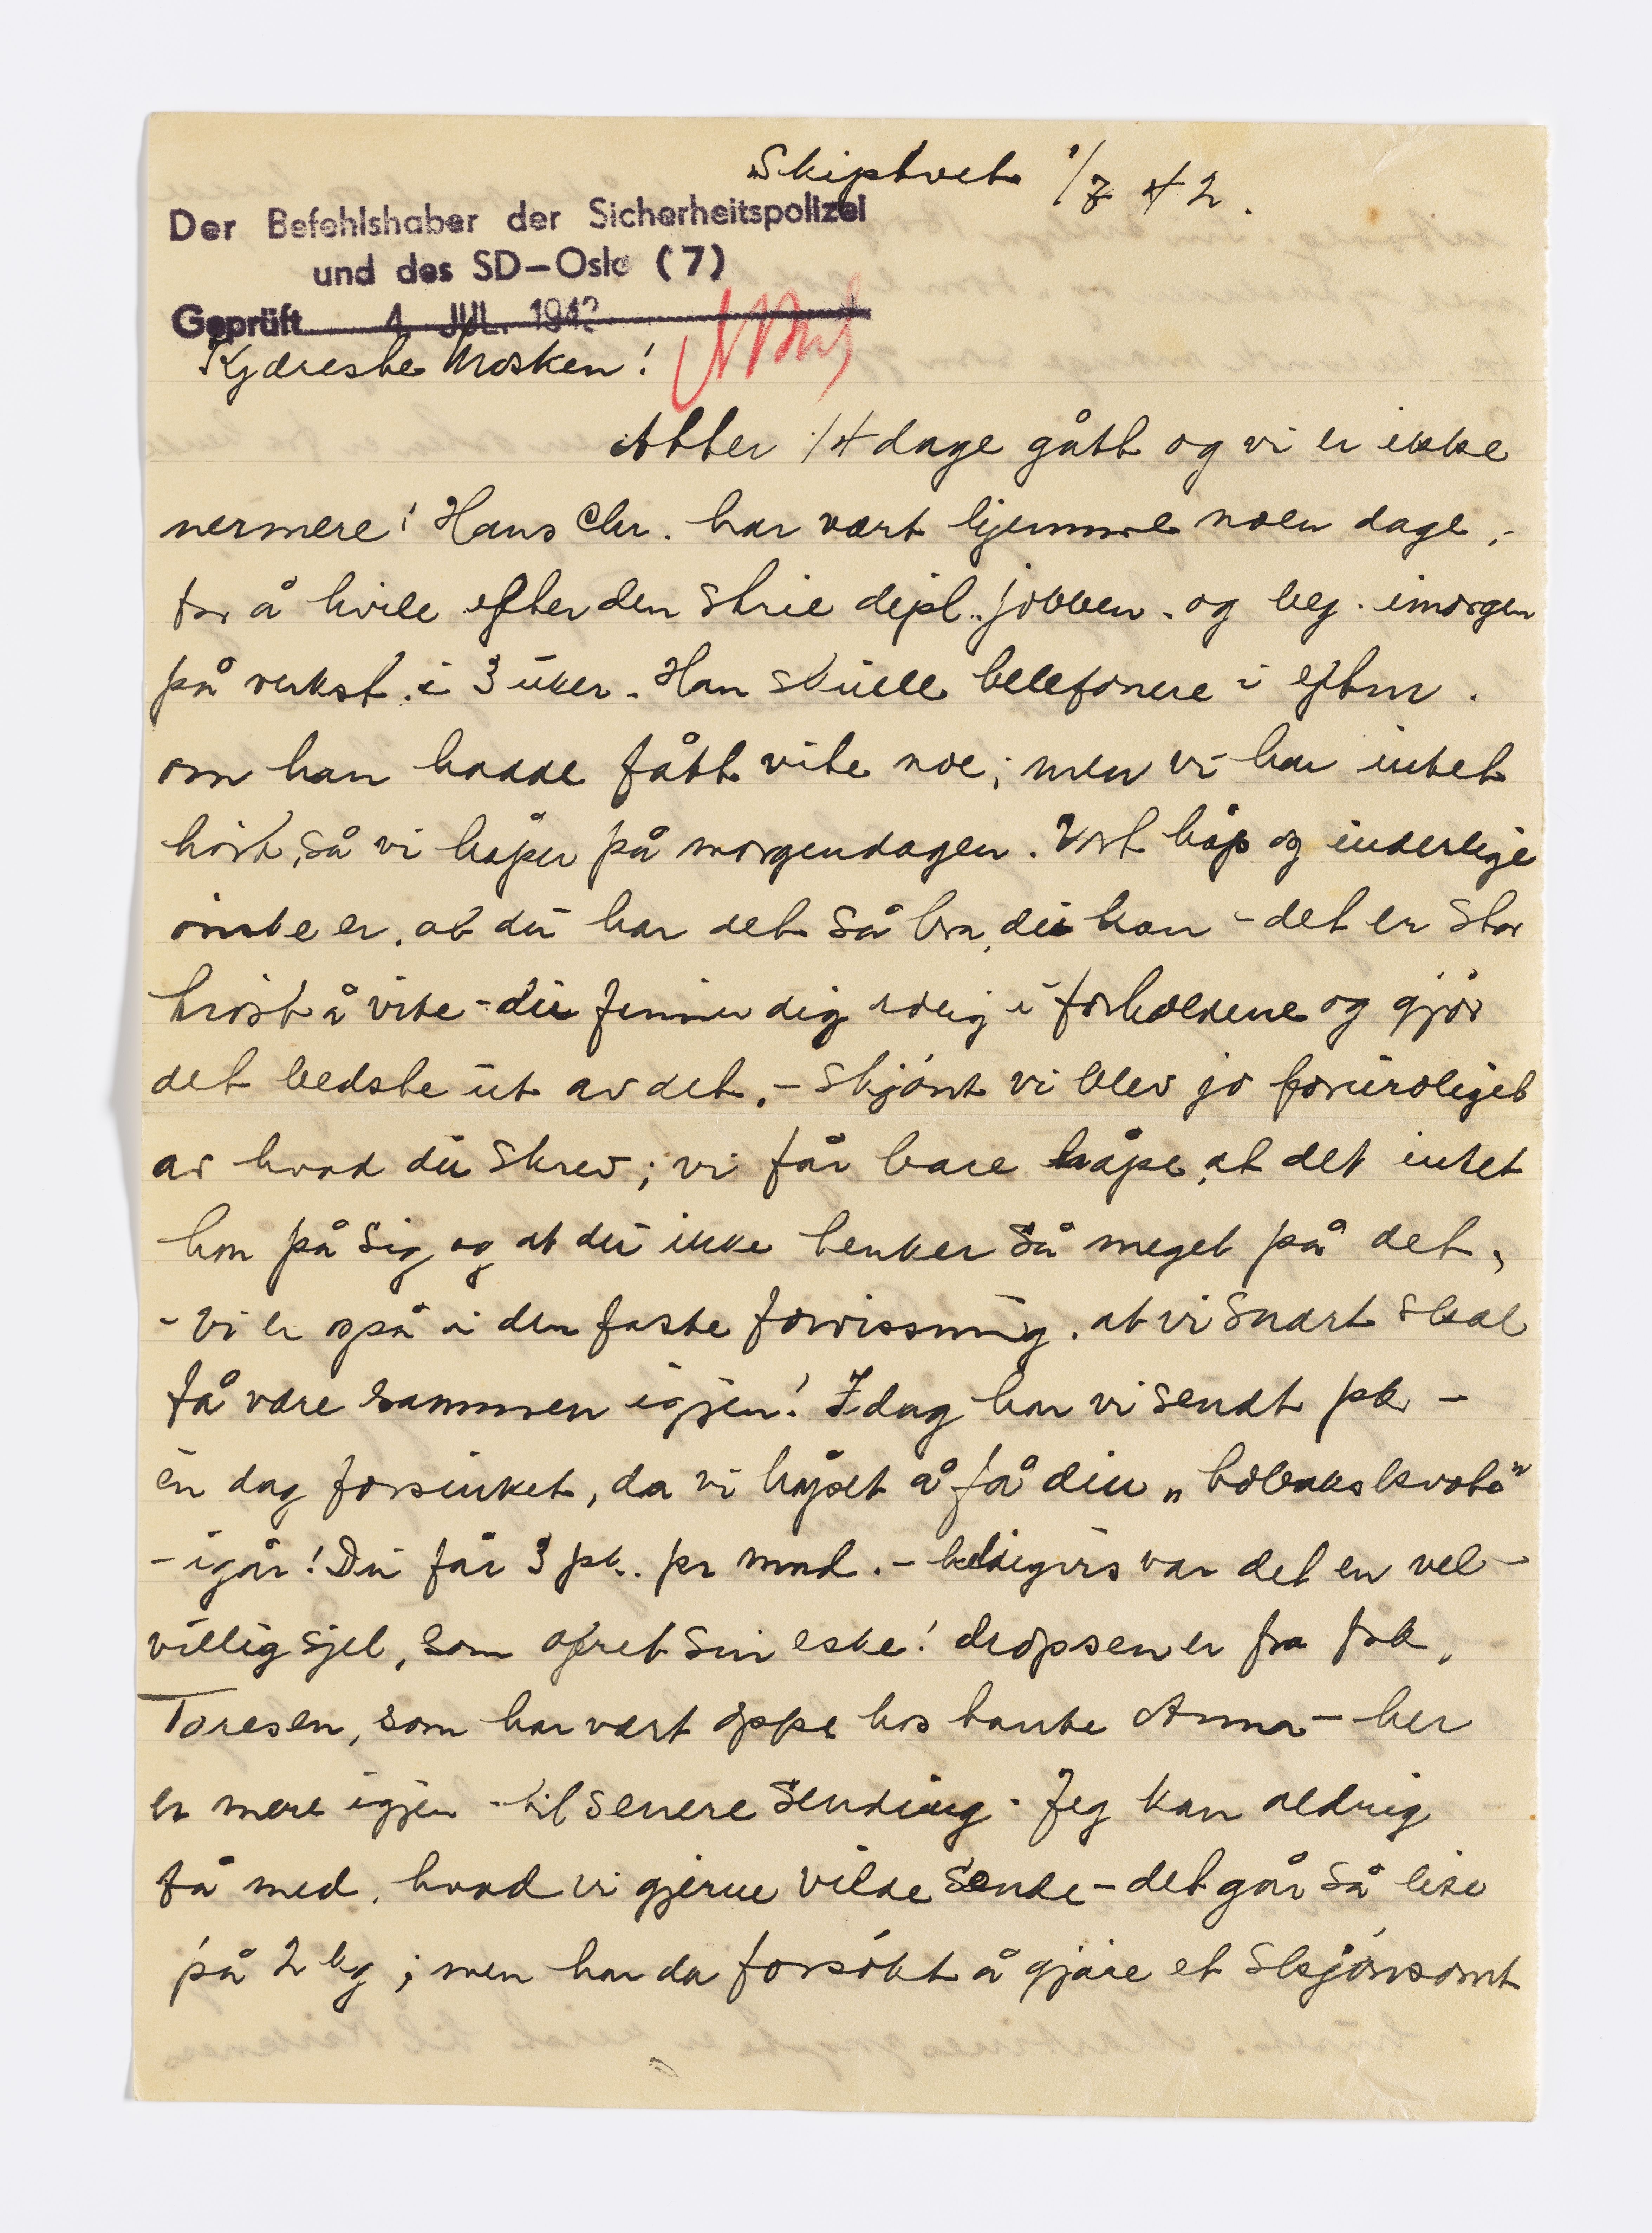 Skiptvet 1/7 42.
Der Befehlshaber der Sicherheitspolizei
und des SD-Oslo (7)
Geprüft 4. JUL. 1942
Kjæreste Mosken!
Atter 14 dage gått og vi er ikke
nermere! Hans Chr. har vært hjemme noen dage,-
for å hvile efter den strie dipl.. jobben. og beg. imorgen
på verkst. i 3 uker. Han skulle telefonere i eftm.
om han hadde fått vite noe; men vi har intet
hørt, så vi håper på morgendagen. Vort håp og inderlige
ønske er, at du har det så bra, du kan - det er stor
trøst å vite - du finner dig rolig i forholdene og gjør
det bedste ut av det. - skjønt vi blev jo foruroliget
av hvad du skrev; vi får bare håpe, at det intet
har på sig, og at du ikke tenker så meget på det,
- Vi er også i den faste forvissning. at vi snart skal
få være sammen igjen! Idag har vi sendt pk -
en dag forsinket, da vi håpet å få din „tobakskvote"
- igår! Du får 3 pk.. pr mnd. - heldigvis var det en vel-
villig sjel, som ofret sin eske! dropsen er fra frk,
Toresen, som har vært oppe hos tante Anna - her
er mere igjen - til senere sending. Jeg kan aldrig
få med, hvad vi gjerne vilde sende - det går så lite
på 2 kg; men har da forsøkt å gjøre et skjønsomt